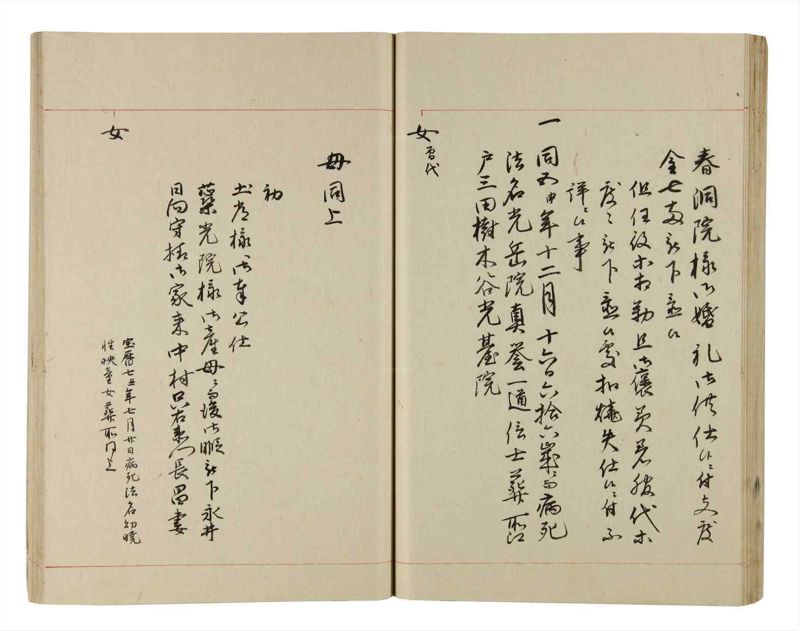 春洞院様御婚礼御供仕候ニ付支度
金七両被下置候
但役等相勤且御褒美着服代等
度々被下置候處扣焼失仕候ニ付不
詳ニ候事
一 同五申年十二月十六日六拾六歳ニ而病死
法名光岳院真誉一道信士葬所江
戸三田樹木谷光臺院
女 夏代
母同上
初
土屋様御奉公仕
蘂光院様御産母ニ而後御暇被下永井
日向守様御家来中村口右衛門長昌妻
女
宝暦七丑年七月廿日病死法名幻暁
性映童女葬所同上